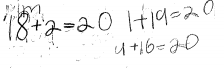 18+2=20 1+19=20
4+16=20